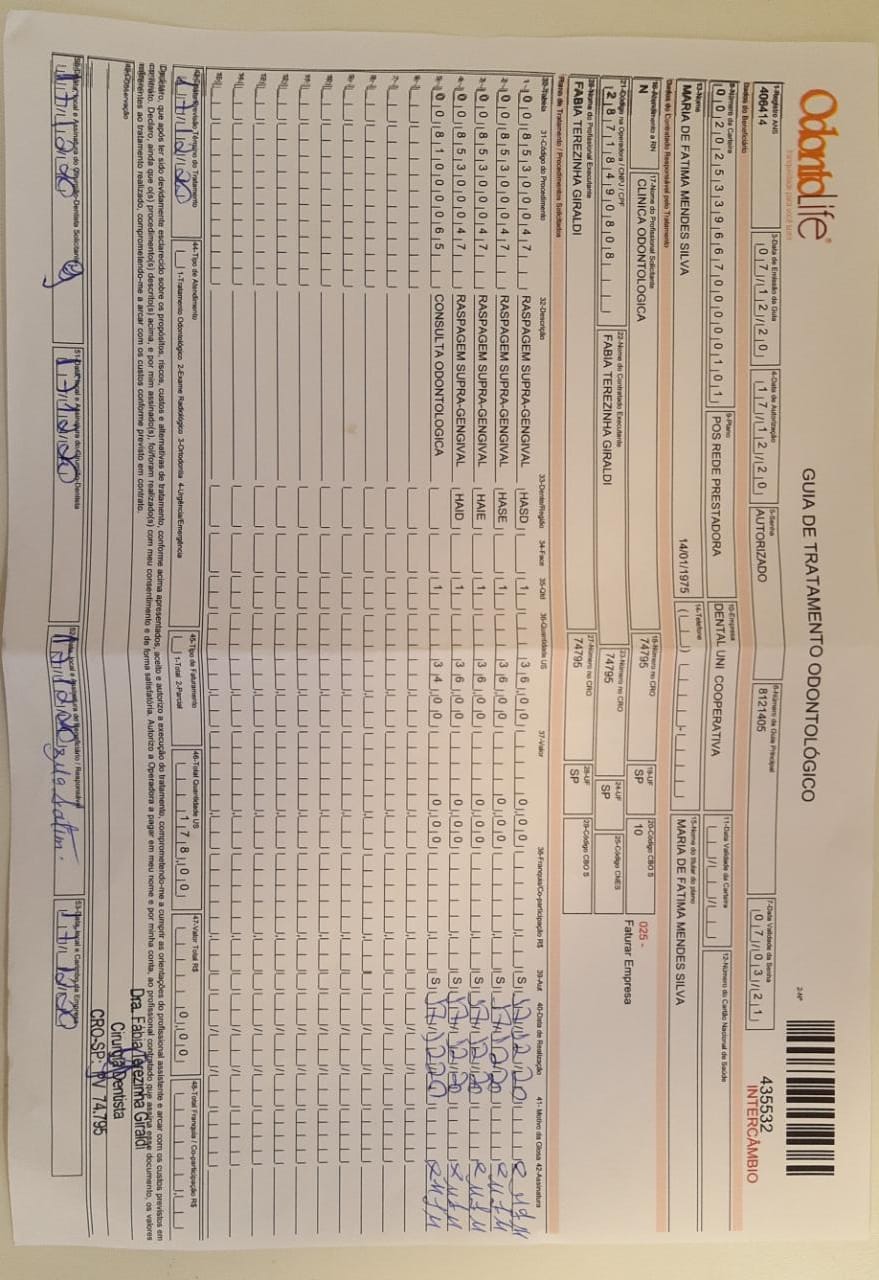 OdontoLife®
tranquilidade para você sorrir
GUIA DE TRATAMENTO ODONTOLÓGICO
2-Nº
435532
INTERCÂMBIO
1-Registro ANS
406414
3-Data de Emissão da Guia
07/12/20
4-Data de Autorização
17/12/20
5-Senha
AUTORIZADO
6-Número da Guia Principal
8121405
7-Data Validade da Senha
07/03/21
Dados do Beneficiário
8-Número da Carteira
00202533966700000101
9-Plano
POS REDE PRESTADORA
10-Empresa
DENTAL UNI COOPERATIVA
11-Data Validade da Carteira
12-Número do Cartão Nacional de Saúde
13-Nome
MARIA DE FATIMA MENDES SILVA
14/01/1975
14-Telefone
15-Nome do titular do plano
MARIA DE FATIMA MENDES SILVA
Dados do Contratado Responsável pelo Tratamento
16-Atendimento a RN
N
17-Nome do Profissional Solicitante
CLINICA ODONTOLOGICA
18-Número no CRO
74795
19-UF
SP
20-Código CBO S
10
025 -
Faturar Empresa
21-Código na Operadora / CNPJ / CPF
28718490808
22-Nome do Contratado Executante
FABIA TEREZINHA GIRALDI
23-Número no CRO
74795
24-UF
SP
25-Código CNES
26-Nome do Profissional Executante
FABIA TEREZINHA GIRALDI
27-Número no CRO
74795
28-UF
SP
29-Código CBO S
Plano de Tratamento / Procedimentos Solicitados
30-Tabela 31-Código do Procedimento 32-Descrição 33-Dente/Região 34-Face 35-Qtd 36-Quantidade US 37-Valor 38-Franquia/Co-participação R$ 39-Aut 40-Data de Realização 41- Motivo da Glosa 42-Assinatura
1- 00 85300047 RASPAGEM SUPRA-GENGIVAL HASD 1 36,00 0,00 S 17/12/20
2- 00 85300047 RASPAGEM SUPRA-GENGIVAL HASE 1 36,00 0,00 S 17/12/20
3- 00 85300047 RASPAGEM SUPRA-GENGIVAL HAIE 1 36,00 0,00 S 17/12/20
4- 00 85300047 RASPAGEM SUPRA-GENGIVAL HAID 1 36,00 0,00 S 17/12/20
5- 00 81000065 CONSULTA ODONTOLOGICA 1 34,00 0,00 S 17/12/20
6-
7-
8-
9-
10-
11-
12-
13-
14-
15-
43-Data Previsão Término do Tratamento
17/12/20
44-Tipo de Atendimento
1-Tratamento Odontológico 2-Exame Radiológico 3-Ortodontia 4-Urgência/Emergência
45-Tipo de Faturamento
1-Total 2-Parcial
46-Total Quantidade US
178,00
47-Valor Total R$
0,00
48-Total Franquia / Co-participação R$
Declaro, que após ter sido devidamente esclarecido sobre os propósitos, riscos, custos e alternativas de tratamento, conforme acima apresentados, aceito e autorizo a execução do tratamento, comprometendo-me a cumprir as orientações do profissional assistente e arcar com os custos previstos em
contrato. Declaro, ainda que o(s) procedimento(s) descrito(s) acima, e por mim assinado(s), foi/foram realizado(s) com meu consentimento e de forma satisfatória. Autorizo a Operadora a pagar em meu nome e por minha conta, ao profissional contratado que assina esse documento, os valores
referentes ao tratamento realizado, comprometendo-me a arcar com os custos conforme previsto em contrato.
49-Observação
Dra. Fábia Terezinha Giraldi
Cirurgiã Dentista
CRO-SP: 74.795
50-Data, local e Assinatura do Cirurgião-Dentista Solicitante
17/12/20
51-Data, local e Assinatura do Cirurgião-Dentista
17/12/20
52-Data, local e Assinatura do Beneficiário / Responsável
17/12/20
53-Data, local e Carimbo da Empresa
17/12/20